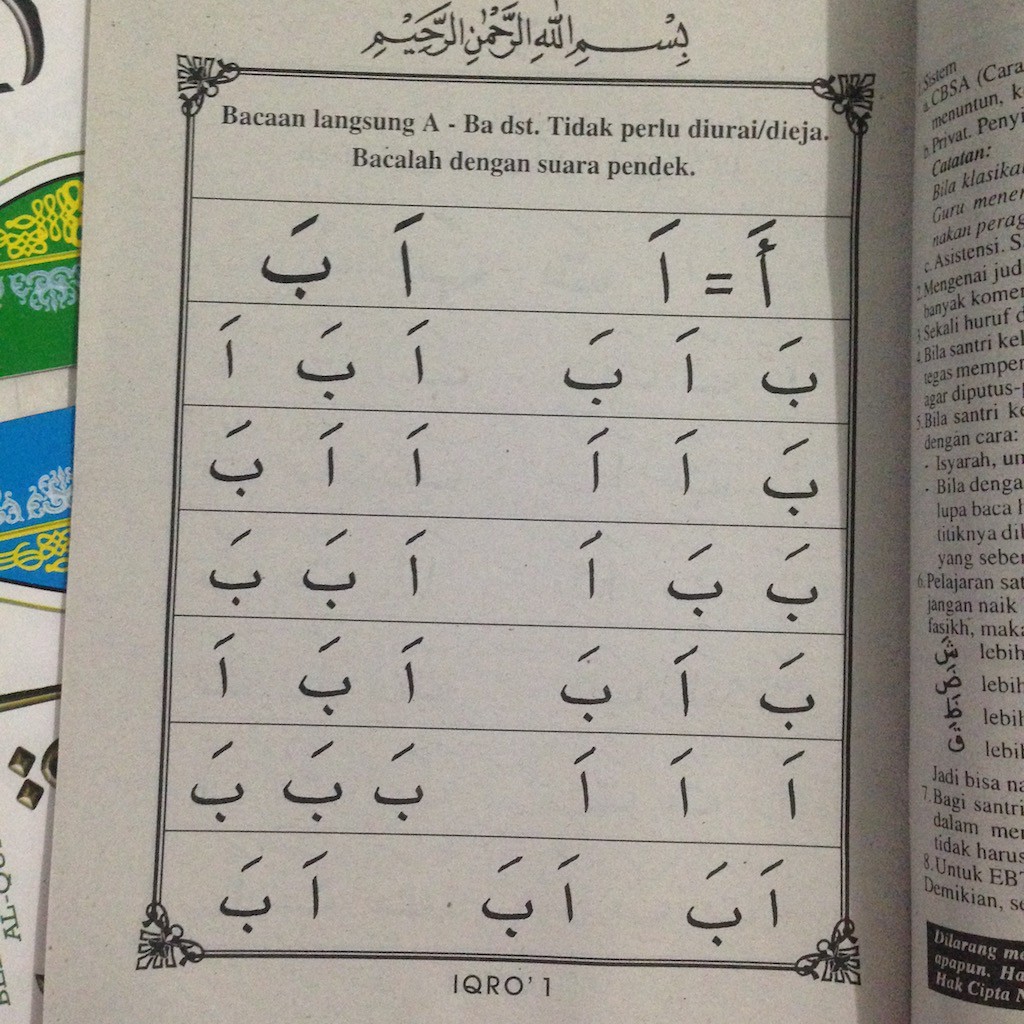 بِسْمِ اللهِ الرَّحْمٰنِ الرَّحِيْمِ
Bacaan langsung A - Ba dst. Tidak perlu diurai/dieja.
Bacalah dengan suara pendek.
أَ = اَ اَ بَ
بَ اَ بَ اَ بَ اَ
بَ اَ اَ اَ اَ بَ
بَ بَ اَ اَ بَ بَ
بَ اَ بَ اَ بَ اَ
اَ اَ اَ بَ بَ بَ
اَ بَ اَ بَ اَ بَ
IQRO' 1
Sistem
a. CBSA (Cara
menuntun, k
b. Privat. Peny
Catatan:
Bila klasika
Guru mener
nakan perag
c. Asistensi. S
2. Mengenai jud
banyak komen
3. Sekali huruf d
4. Bila santri kel
tegas memper
agar diputus-p
5. Bila santri ke
dengan cara:
- Isyarah, un
- Bila denga
lupa baca h
titiknya dib
yang seber
6. Pelajaran sat
jangan naik
fasikh, maka
lebih
lebih
lebih
lebih
Jadi bisa na
7. Bagi santri
dalam men
tidak harus
8. Untuk EBT
Demikian, se
Dilarang me
apapun. Ha
Hak Cipta
AL-QU